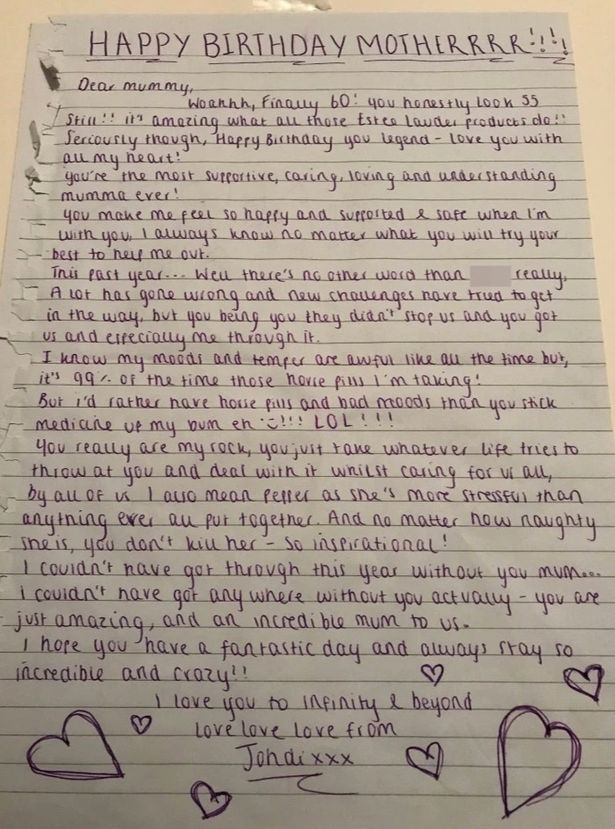 HAPPY BIRTHDAY MOTHERRRR!!!!
Dear mummy,
Woahhh, Finally 60! you honestly look 55
Still!! it's amazing what all those Estee Lauder products do!!
Seriously though, Happy Birthday you legend - love you with
all my heart!
you're the most supportive, caring, loving and understanding
mumma ever!
you make me feel so happy and supported & safe when I'm
with you, I always know no matter what you will try your
best to help me out.
This past year... Well there's no other word than really,
A lot has gone wrong and new challenges have tried to get
in the way, but you being you they didn't stop us and you got
us and especially me through it.
I know my moods and temper are awful like all the time but,
it's 99% of the time those horse pills I'm taking!
But i'd rather have horse pills and bad moods than you stick
medicine up my bum eh :)!!! LOL!!!
you really are my rock, you just take whatever life tries to
throw at you and deal with it whilst caring for us all,
by all of us I also mean Pepper as she's more stressful than
anything ever all put together. And no matter how naughty
she is, you don't kill her - so inspirational!
I couldn't have got through this year without you mum...
I couldn't have got any where without you actually - you are
just amazing, and an incredible mum to us.
I hope you have a fantastic day and always stay so
incredible and crazy!!
I love you to infinity & beyond
Love love love from
Jondi xxx